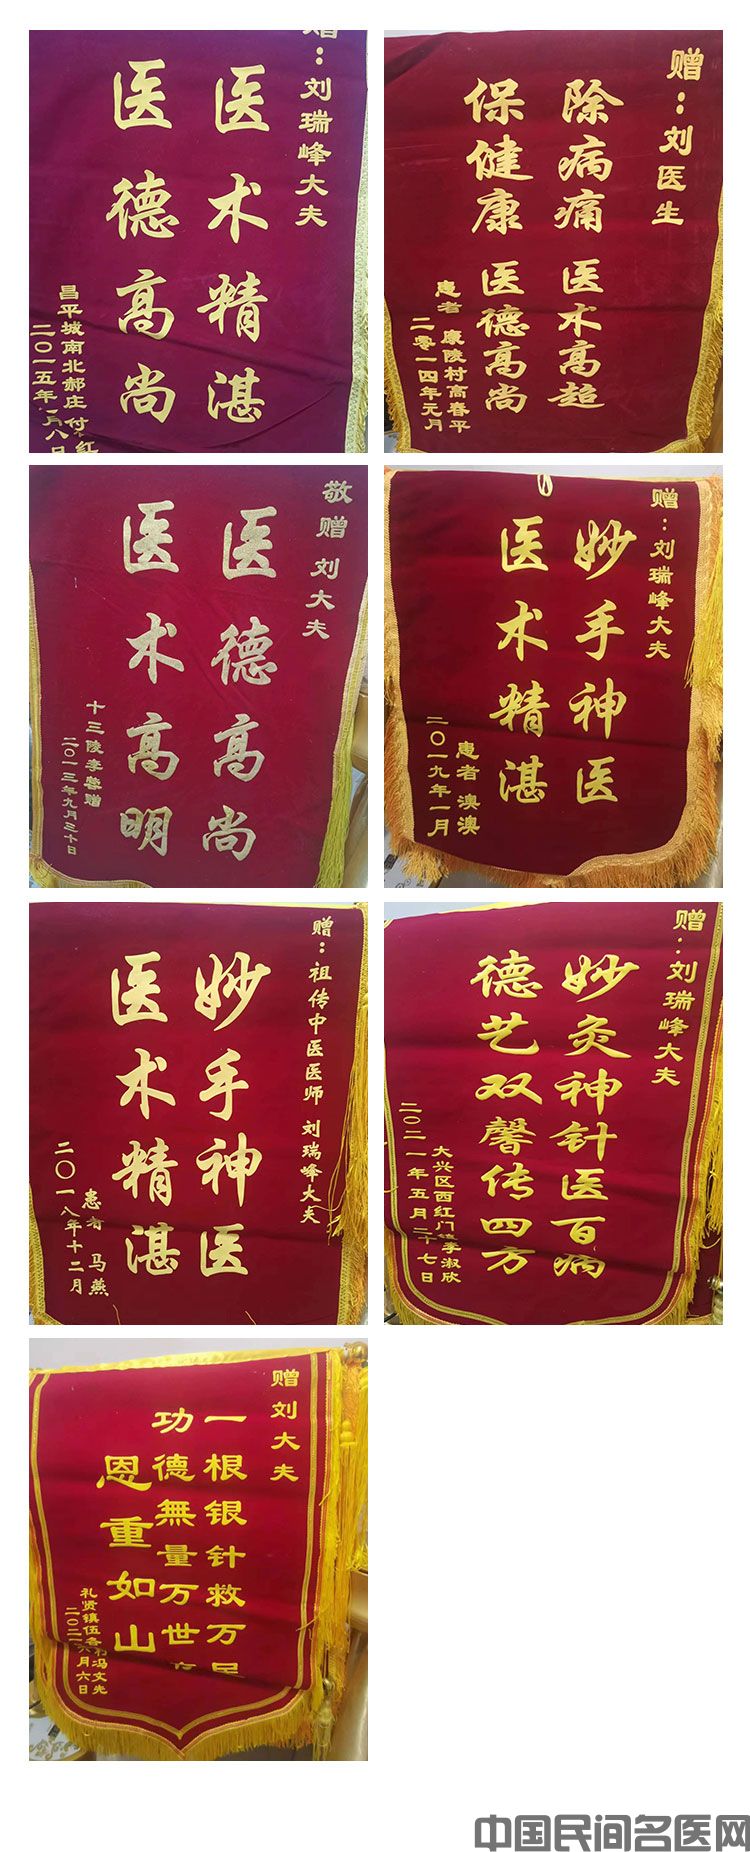 赠：刘瑞峰大夫
医术精湛
医德高尚
昌平城南北郝庄
二〇一五年 月八日
赠：刘医生
除病痛 医术高超
保健康 医德高尚
患者 康陵村高春平
二零一四年元月
敬赠 刘大夫
医德高尚
医术高明
十三陵李蓉赠
二〇一三年九月三十日
赠：刘瑞峰大夫
妙手神医
医术精湛
患者 澳澳
二〇一九年一月
赠：祖传中医医师 刘瑞峰大夫
妙手神医
医术精湛
患者 马燕
二〇一八年十二月
赠：刘瑞峰大夫
妙灸神针医百病
德艺双馨传四方
大兴区西红门镇李淑欣
二〇二一年五月二十七日
赠刘大夫
一根银针救万民
功德無量万世
恩重如山
礼贤镇伍各村冯文先
二〇二 六月六日
中国民间名医网